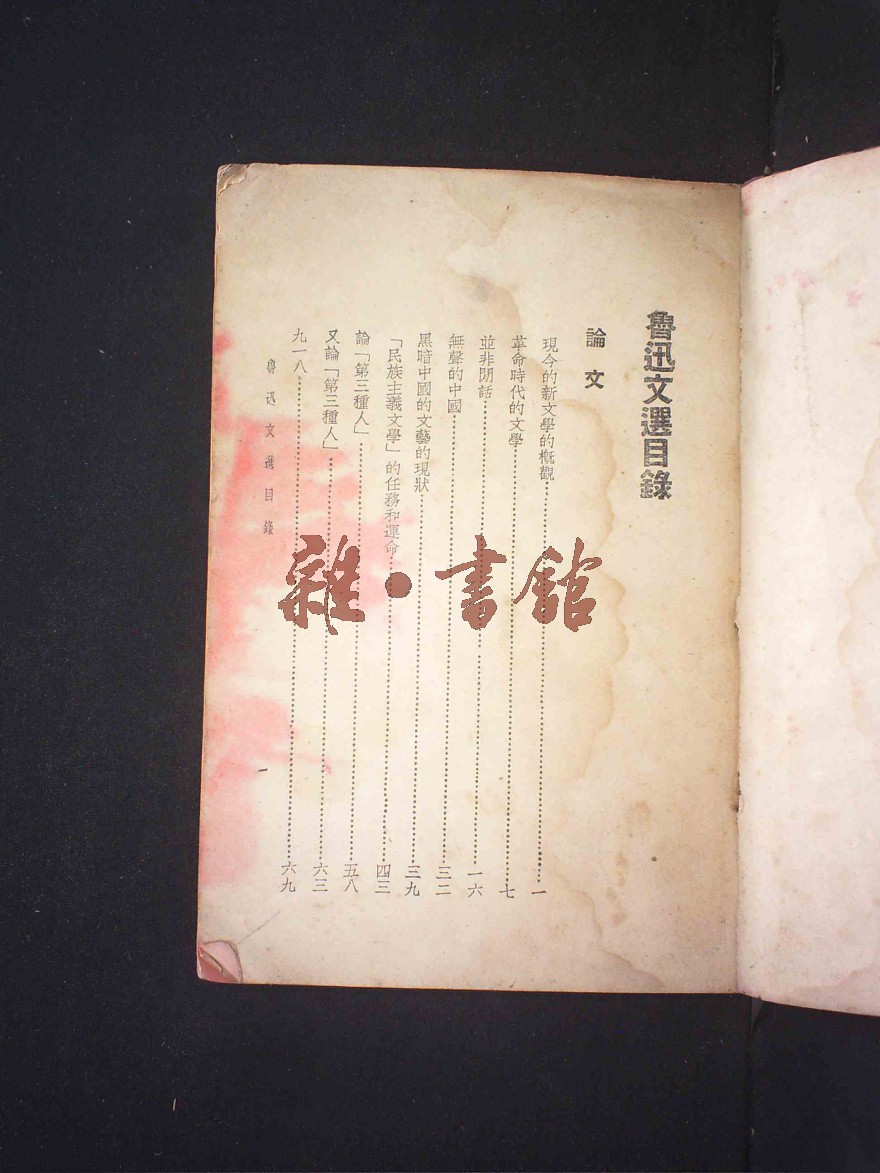 魯迅文選目錄
論文
現今的新文學的概觀……一
革命時代的文學……七
並非閒話……一六
無聲的中國……三二
黑暗中國的文藝的現狀……三九
「民族主義文學」的任務和運命……四三
論「第三種人」……五八
又論「第三種人」……六三
九一八……六九
魯迅文選目錄
一
雜·書館